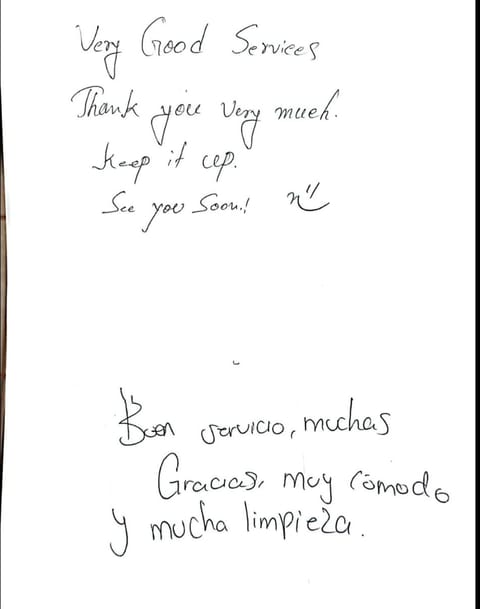 Very Good Services
Thank you very much.
Keep it up.
See you soon!
Buen servicio, muchas
Gracias, muy cómodo
y mucha limpieza.